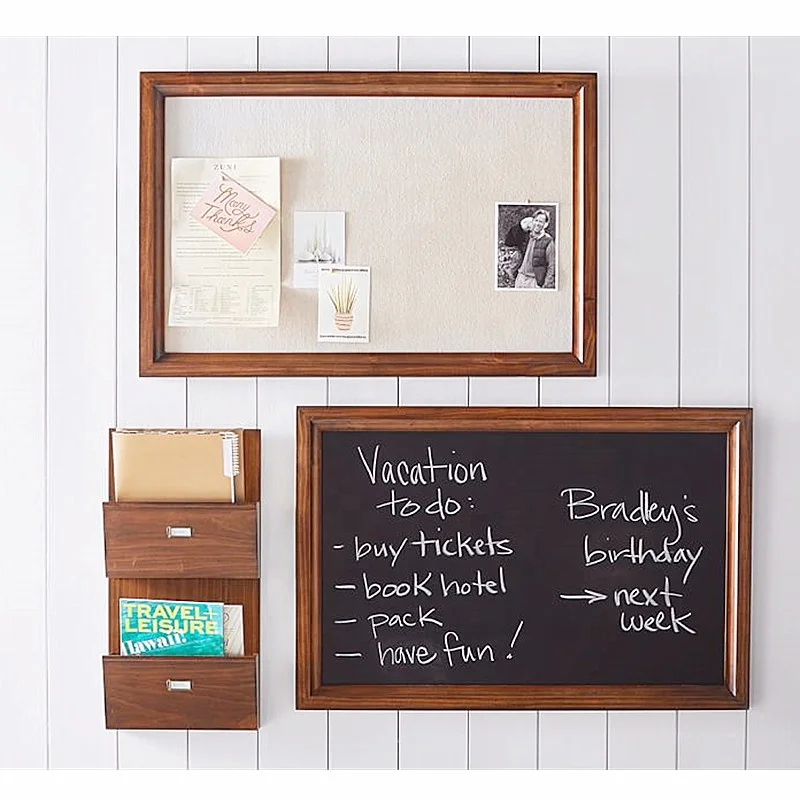 ZUNI
Many
Thanks
Vacation
to do:
- buy tickets
- book hotel
- pack
- have fun!
Bradley's
birthday
→ next
week
TRAVEL+
LEISURE
Hawaii